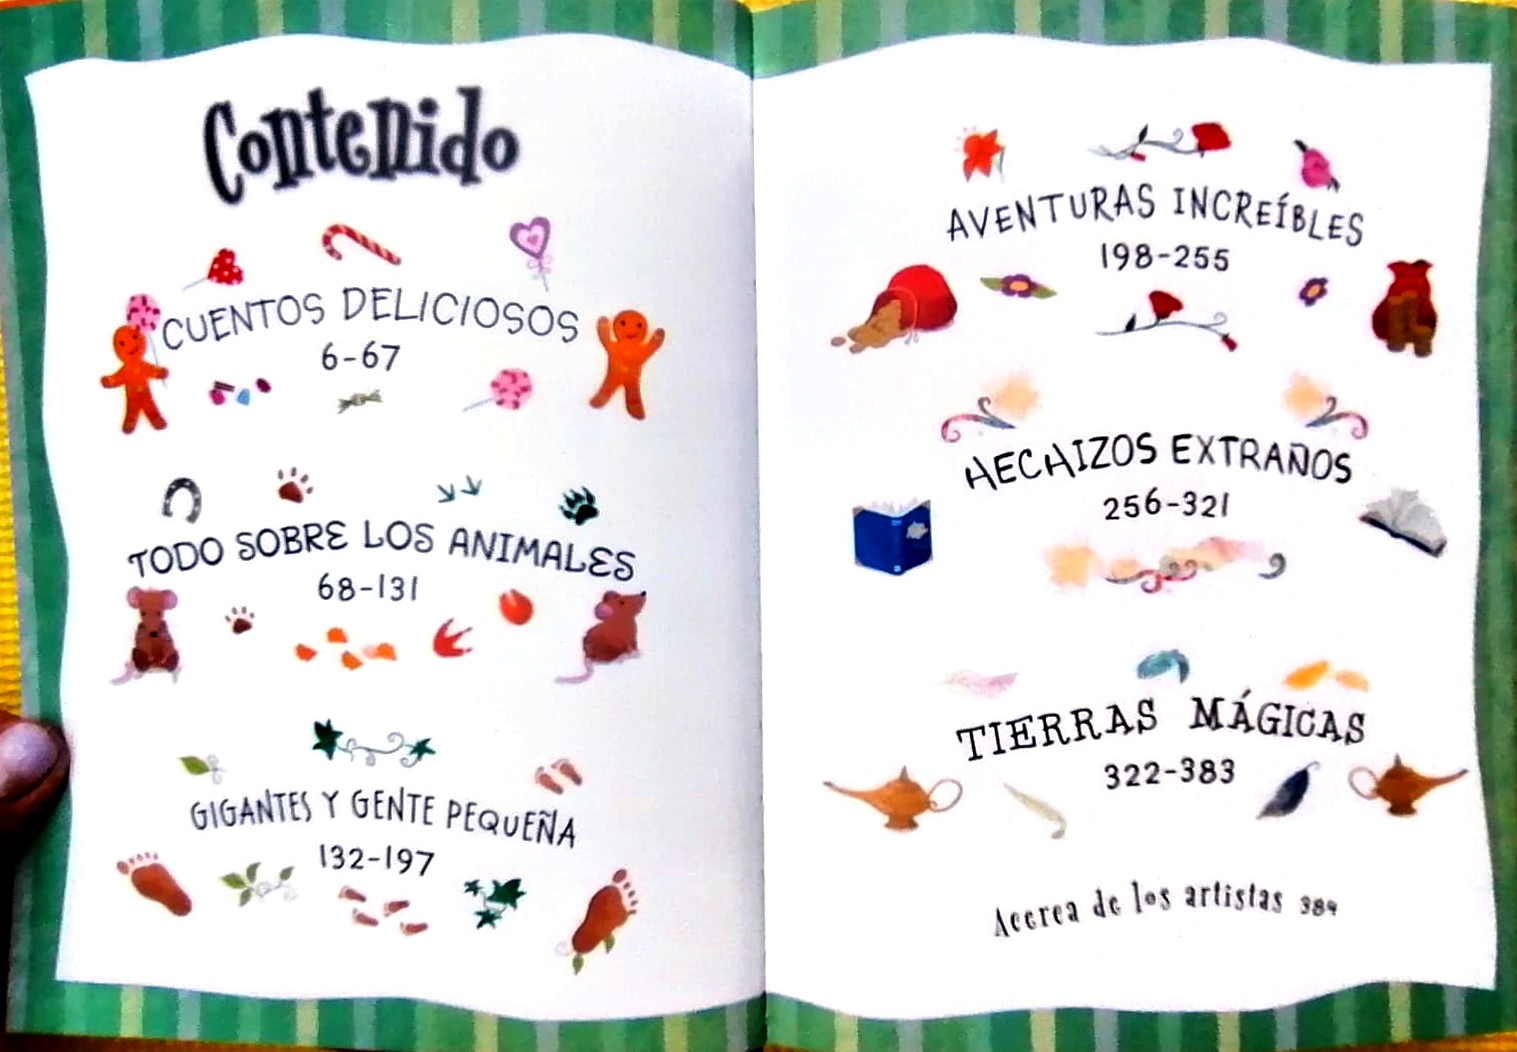 Contenido
CUENTOS DELICIOSOS
6-67
TODO SOBRE LOS ANIMALES
68-131
GIGANTES Y GENTE PEQUEÑA
132-197
AVENTURAS INCREÍBLES
198-255
HECHIZOS EXTRAÑOS
256-321
TIERRAS MÁGICAS
322-383
Acerca de los artistas 384